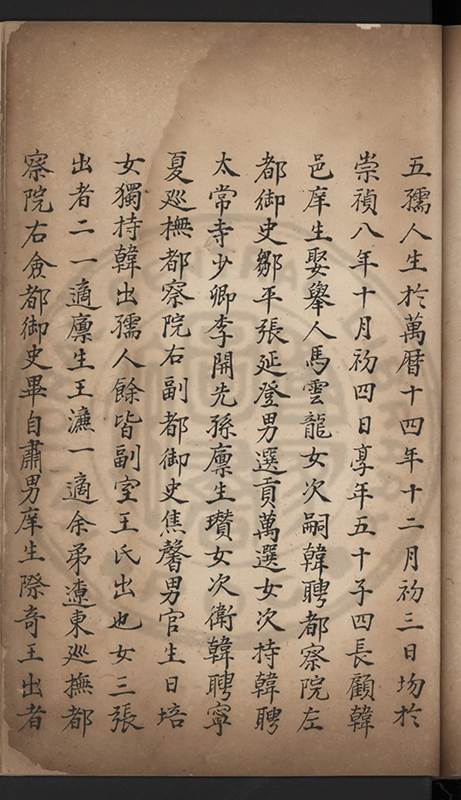 五孺人生於萬曆十四年十二月初三日均於
崇禎八年十月初四日享年五十子四長顧韓
邑庠生娶舉人馬雲龍女次嗣韓聘都察院左
都御史鄒平張延登男選貢萬選女次持韓聘
太常寺少卿李開先孫廪生瓚女次衛韓聘寧
夏廵撫都察院右副都御史焦馨男官生日培
女獨持韓出孺人餘皆副室王氏出也女三張
出者二一適廪生王濂一適余弟遼東廵撫都
察院右僉都御史畢自肅男庠生際竒王出者